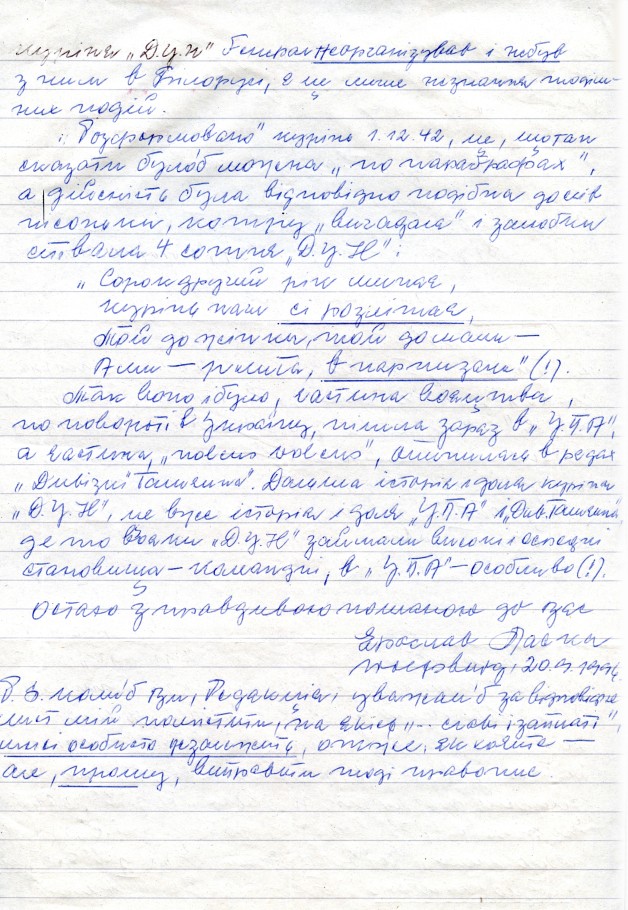 куріня „Д.У.Н" Генерал не організував і не був
з ним в Білорусі, а це лише незнання тодіш-
них подій.
„Розформовано" курінь 1.12.42, це, що так
сказати було́б можна „по параграфах",
а дійсність була відповідно подібна до слів
пісоньки, котру „вигадала" і залюбки
співала 4 сотня „Д.У.Н":
„Сорокдругий рік минає,
курінь наш сі розлітає,
Той до жінки, той до мами —
А ми — решта, в партизани" (!).
Так воно і було, частина вояцтва,
по повороті в Україну, пішла зараз в „У.П.А",
а частина, „nolens volens", опинилась в рядах
„Дивізії Галичина". Дальша історія і доля куріня
„Д.У.Н", це вже історія і доля „У.П.А" і „Див. Галичина",
де то вояки „Д.У.Н" займали високі і середні
становища — командні, в „У.П.А" — особливо (!).
Остаю з правдивою пошаною до Вас
Ярослав
20.9.1996.
P.S. коли́б Ви, Редакція і уважали́б за відповідне
лист мій помістити, на якісь „.. слові і заплаті",
мені особисто не залежить, отже, як хочете —
але, прошу, виправити тоді правопис.